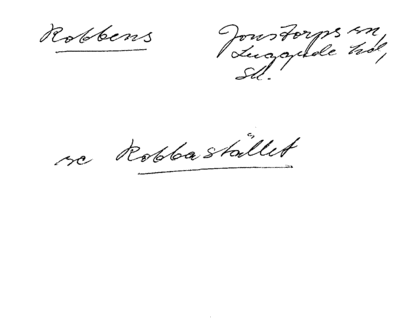 Robbens
Jonstorps sn,
Luggude hd,
Sk.
se Robbastället